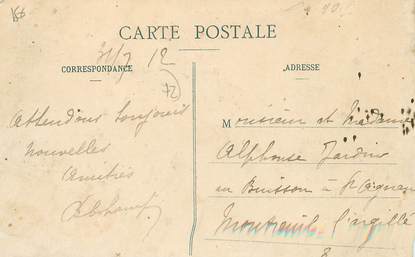 CARTE POSTALE
31/7 12
CORRESPONDANCE
ADRESSE
Attendons toujours
nouvelles
Amitiés
Monsieur et Madame
Alphonse Jardin
au Buisson à St Aignan
Montreuil l'argillé